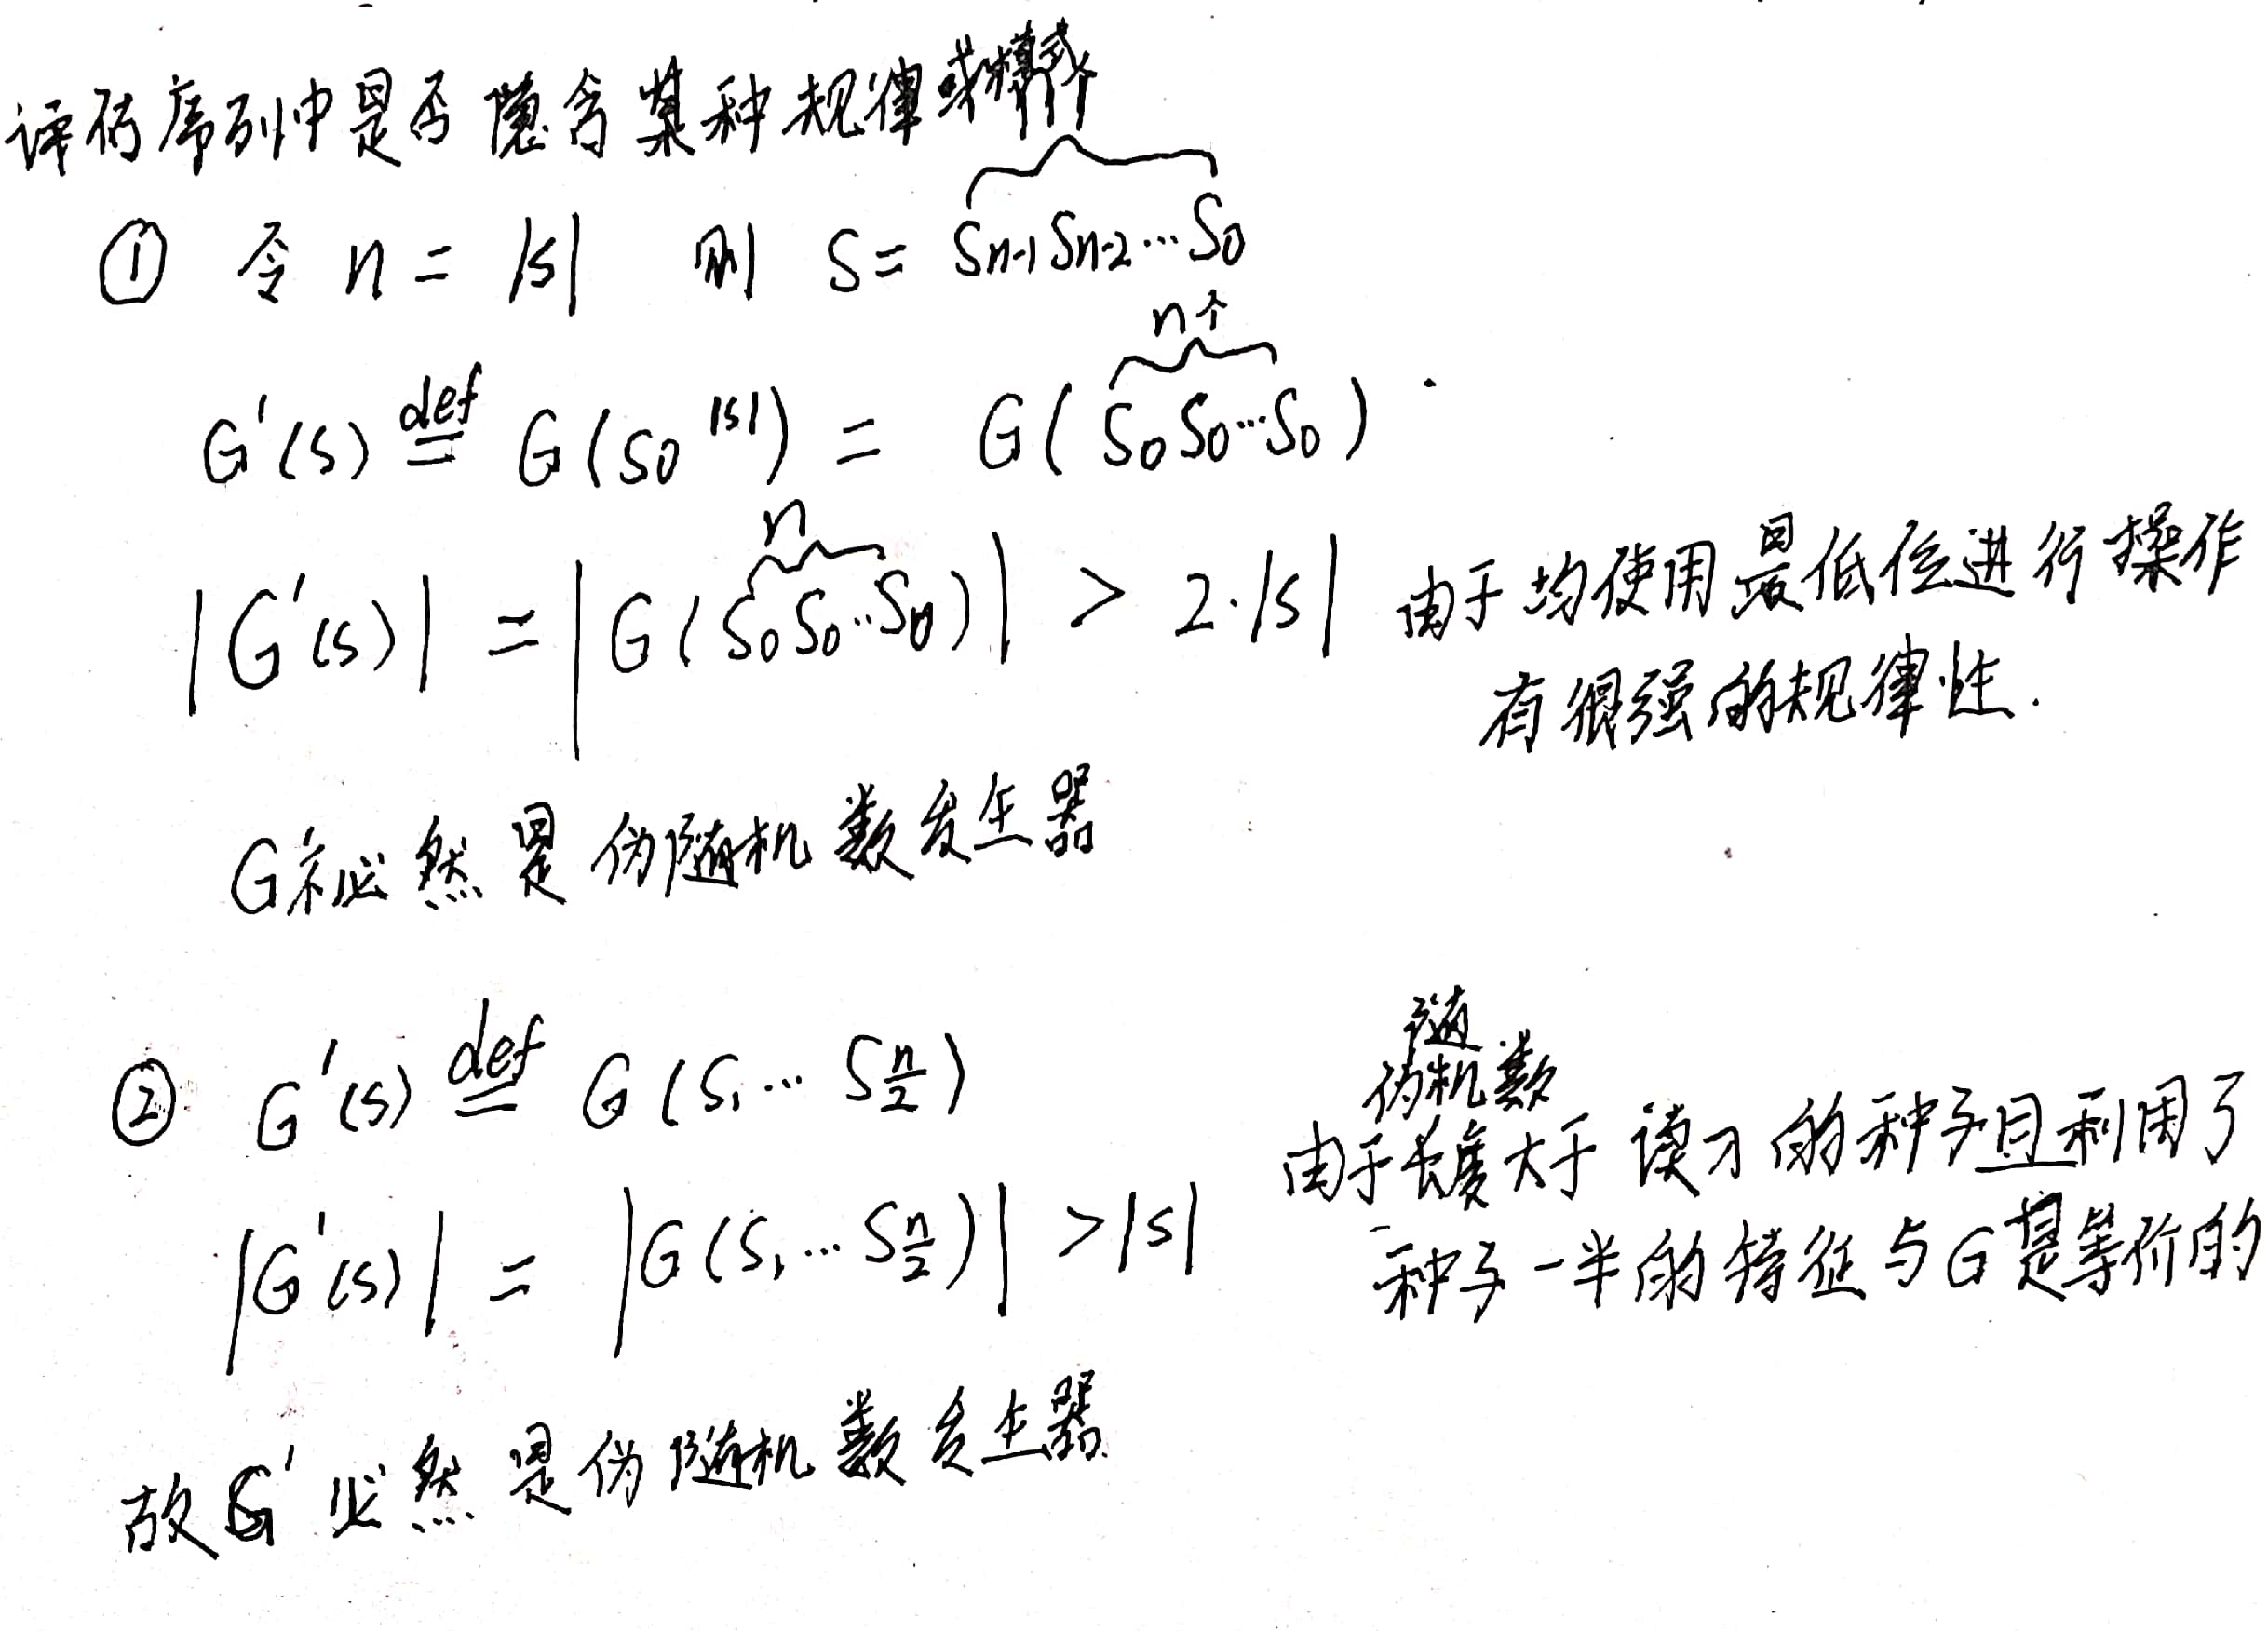 评估序列中是否隐含某种规律或模式
① 令 n = |s| 则 S = Sn-1Sn-2…S0
n个
G'(s) def= G(s0^|s|) = G(S0S0…S0)
n
|G'(s)| = |G(S0S0…S0)| > 2·|s| 由于均使用最低位进行操作
有很强的规律性.
G'不必然是伪随机数发生器
② G'(s) def= G(S1…Sn/2) 伪随机数
由于长度大于 读入的种子且利用了
|G'(s)| = |G(S1…Sn/2)| > |s|
种子一半的特征与G是等价的
故G'必然是伪随机数发生器